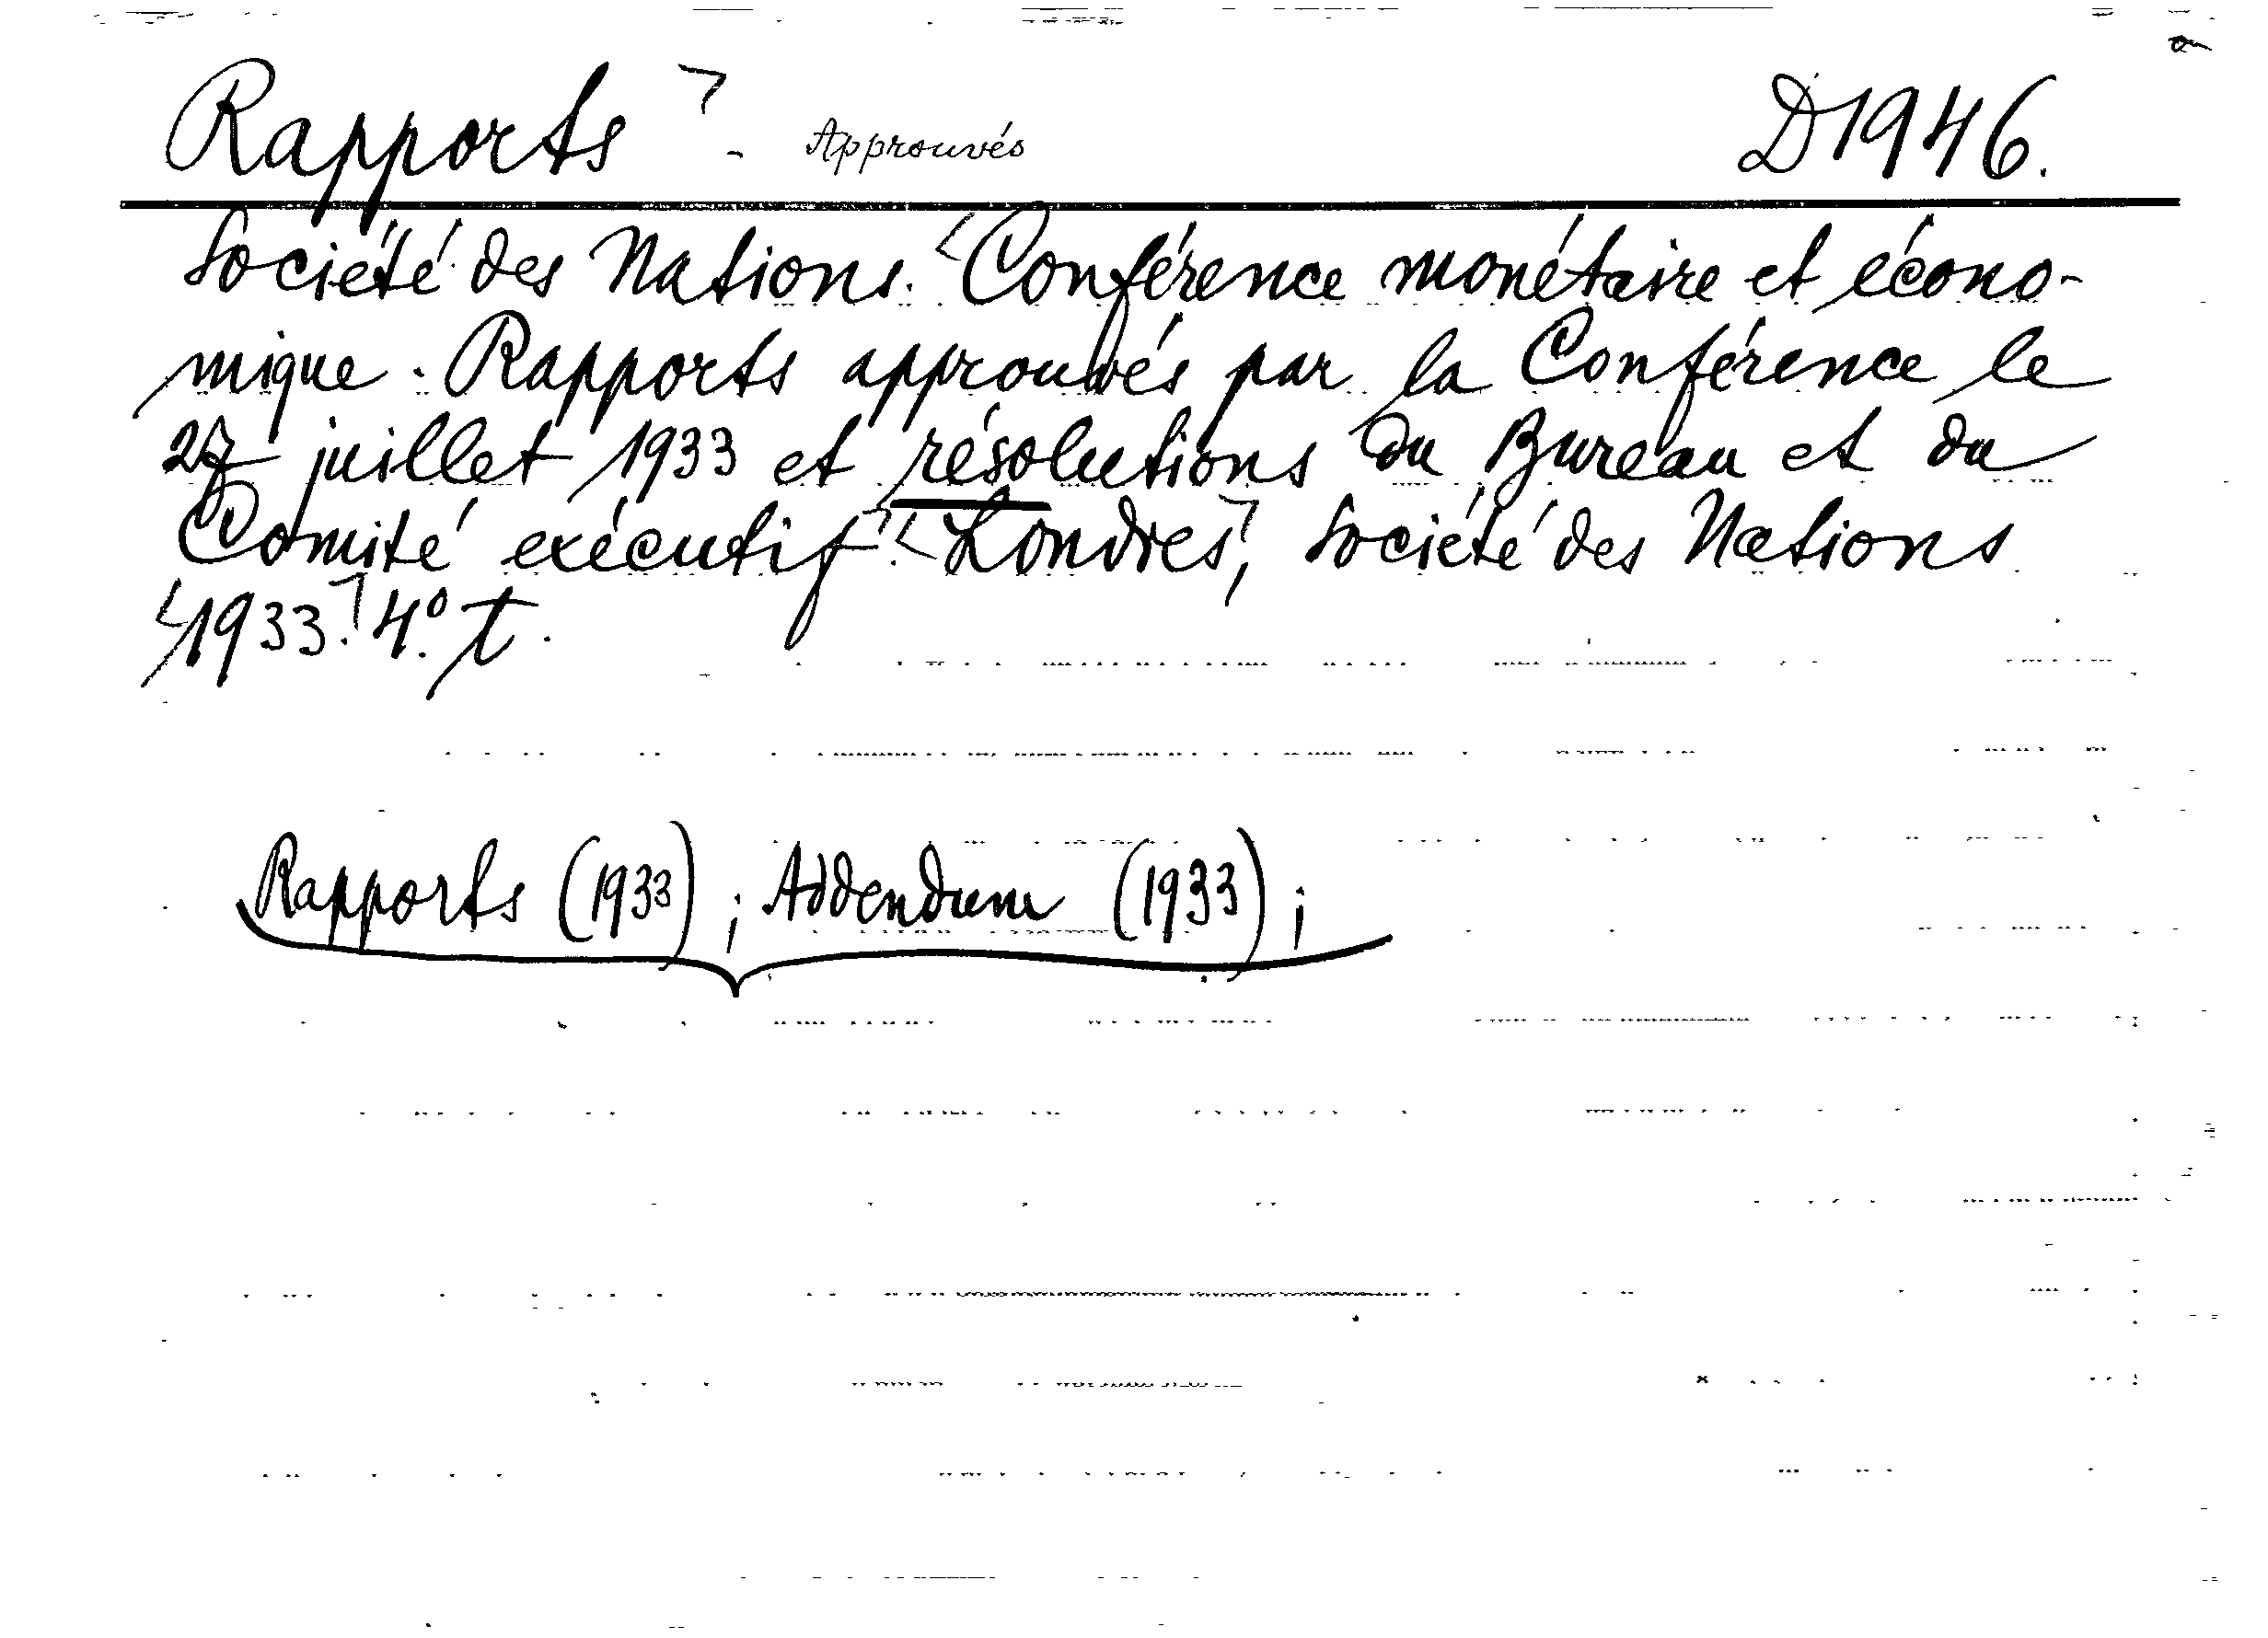 Rapports - Approuvés D1946.
Société des Nations. Conférence monétaire et écono-
mique. Rapports approuvés par la Conférence le
27 juillet 1933 et résolutions du Bureau et du
Comité exécutif. Londres, Société des Nations
1933. 4º. t.
Rapports (1933) ; Addendum (1933) ;